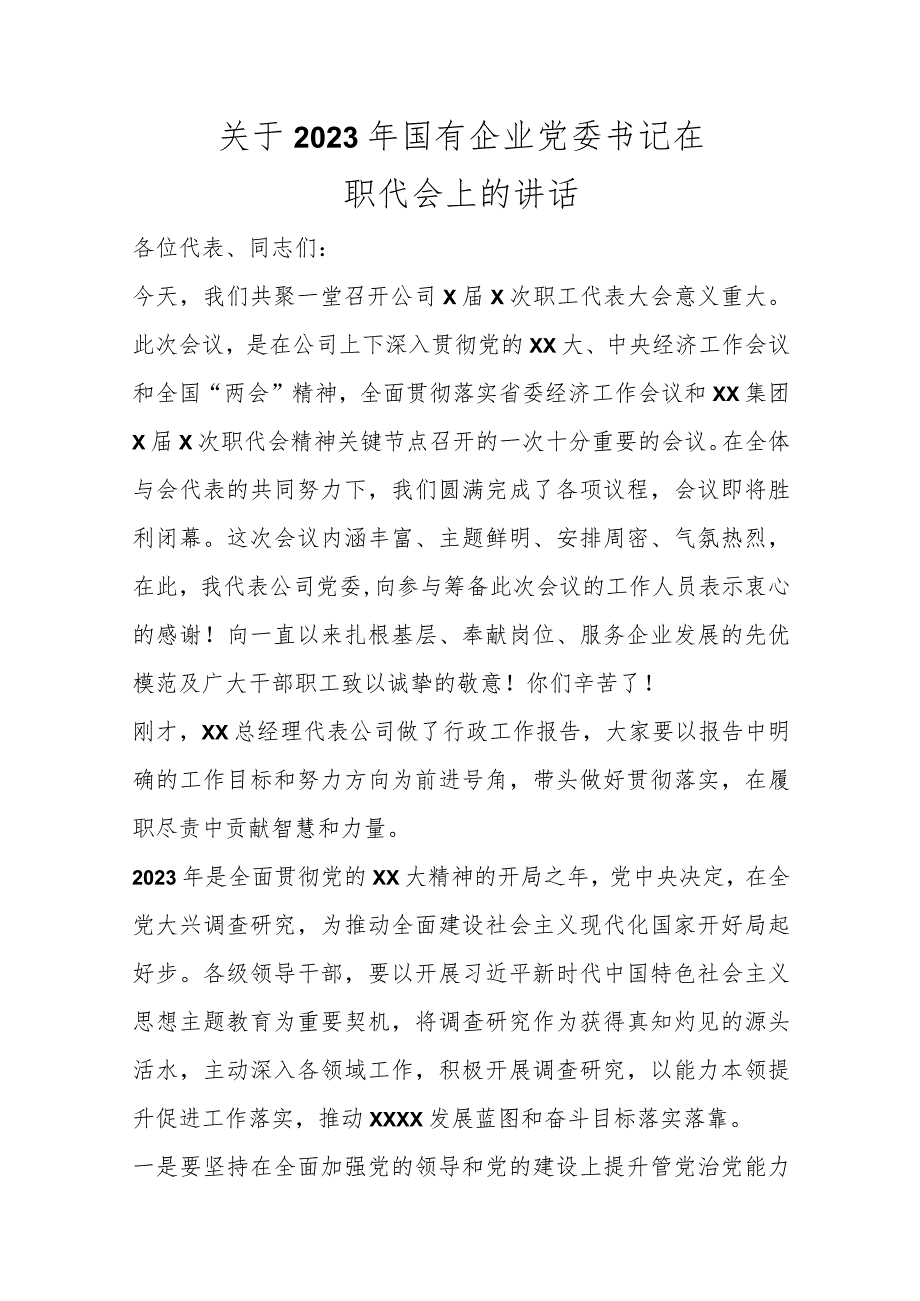 关于 2023 年国有企业党委书记在
职代会上的讲话
各位代表、同志们：
今天，我们共聚一堂召开公司 X 届 X 次职工代表大会意义重大。
此次会议，是在公司上下深入贯彻党的 XX 大、中央经济工作会议
和全国“两会”精神，全面贯彻落实省委经济工作会议和 XX 集团
X 届 X 次职代会精神关键节点召开的一次十分重要的会议。在全体
与会代表的共同努力下，我们圆满完成了各项议程，会议即将胜
利闭幕。这次会议内涵丰富、主题鲜明、安排周密、气氛热烈，
在此，我代表公司党委,向参与筹备此次会议的工作人员表示衷心
的感谢！向一直以来扎根基层、奉献岗位、服务企业发展的先优
模范及广大干部职工致以诚挚的敬意！你们辛苦了！
刚才，XX 总经理代表公司做了行政工作报告，大家要以报告中明
确的工作目标和努力方向为前进号角，带头做好贯彻落实，在履
职尽责中贡献智慧和力量。
2023 年是全面贯彻党的 XX 大精神的开局之年，党中央决定，在全
党大兴调查研究，为推动全面建设社会主义现代化国家开好局起
好步。各级领导干部，要以开展习近平新时代中国特色社会主义
思想主题教育为重要契机，将调查研究作为获得真知灼见的源头
活水，主动深入各领域工作，积极开展调查研究，以能力本领提
升促进工作落实，推动 XXXX 发展蓝图和奋斗目标落实落靠。
一是要坚持在全面加强党的领导和党的建设上提升管党治党能力